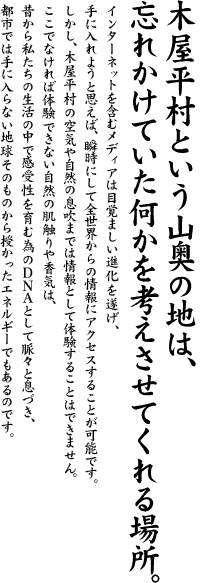 木屋平村という山奥の地は、
忘れかけていた何かを考えさせてくれる場所。
インターネットを含むメディアは目覚ましい進化を遂げ、
手に入れようと思えば、瞬時にして全世界からの情報にアクセスすることが可能です。
しかし、木屋平村の空気や自然の息吹までは情報として体験することはできません。
ここでなければ体験できない自然の肌触りや香気は、
昔から私たちの生活の中で感受性を育む為のDNAとして脈々と息づき、
都市では手に入らない地球そのものから授かったエネルギーでもあるのです。